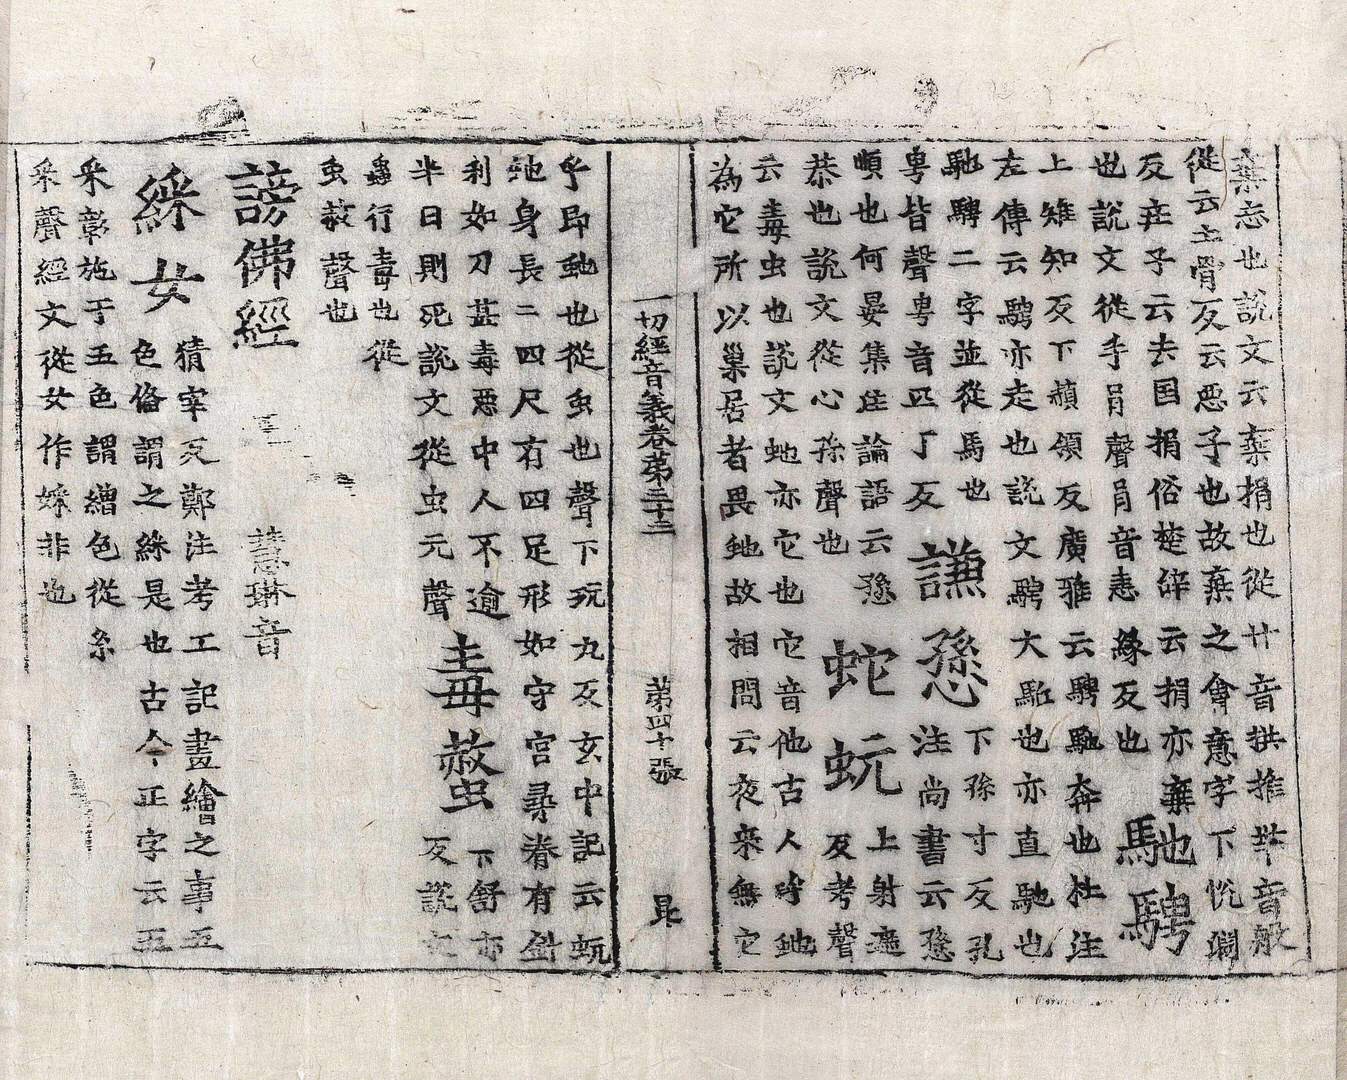 棄忘也說文云棄捐也從廾音拱推𠦒音般
從云土骨反云惡子也故棄之會意字下恱淵
反莊子云去国捐俗楚辝云捐亦棄
也說文從手肙聲肙音恚緣反也
馳騁
上雉知反下頳領反廣雅云騁馳奔也杜注
左傳云騁亦走也說文騁大駈也亦直馳也
馳騁二字並從馬也
甹皆聲甹音匹丁反
謙愻
下孫寸反孔
注尚書云愻
順也何晏集注論語云愻
恭也說文從心孫聲也
蛇蚖
上射遮
反考聲
云毒虫也說文虵亦它也它音他古人呼虵
為它所以巢居者畏虵故相問云夜來無它
一切經音義卷第三十三 第四十張
乎即虵也從虫也聲下玩丸反玄中記云蚖
虵身長二四尺有四足形如守宮尋脊有針
利如刀甚毒惡中人不逾
半日則死說文從虫元聲
毒螫
下舒亦
反說文
蟲行毒也從
虫赦聲也
謗佛經 慧琳音
綵女
猜宰反鄭注考工記畫繪之事五
色俻謂之綵是也古今正字云五
采彰施于五色謂繒色從糸
采聲經文從女作婇非也